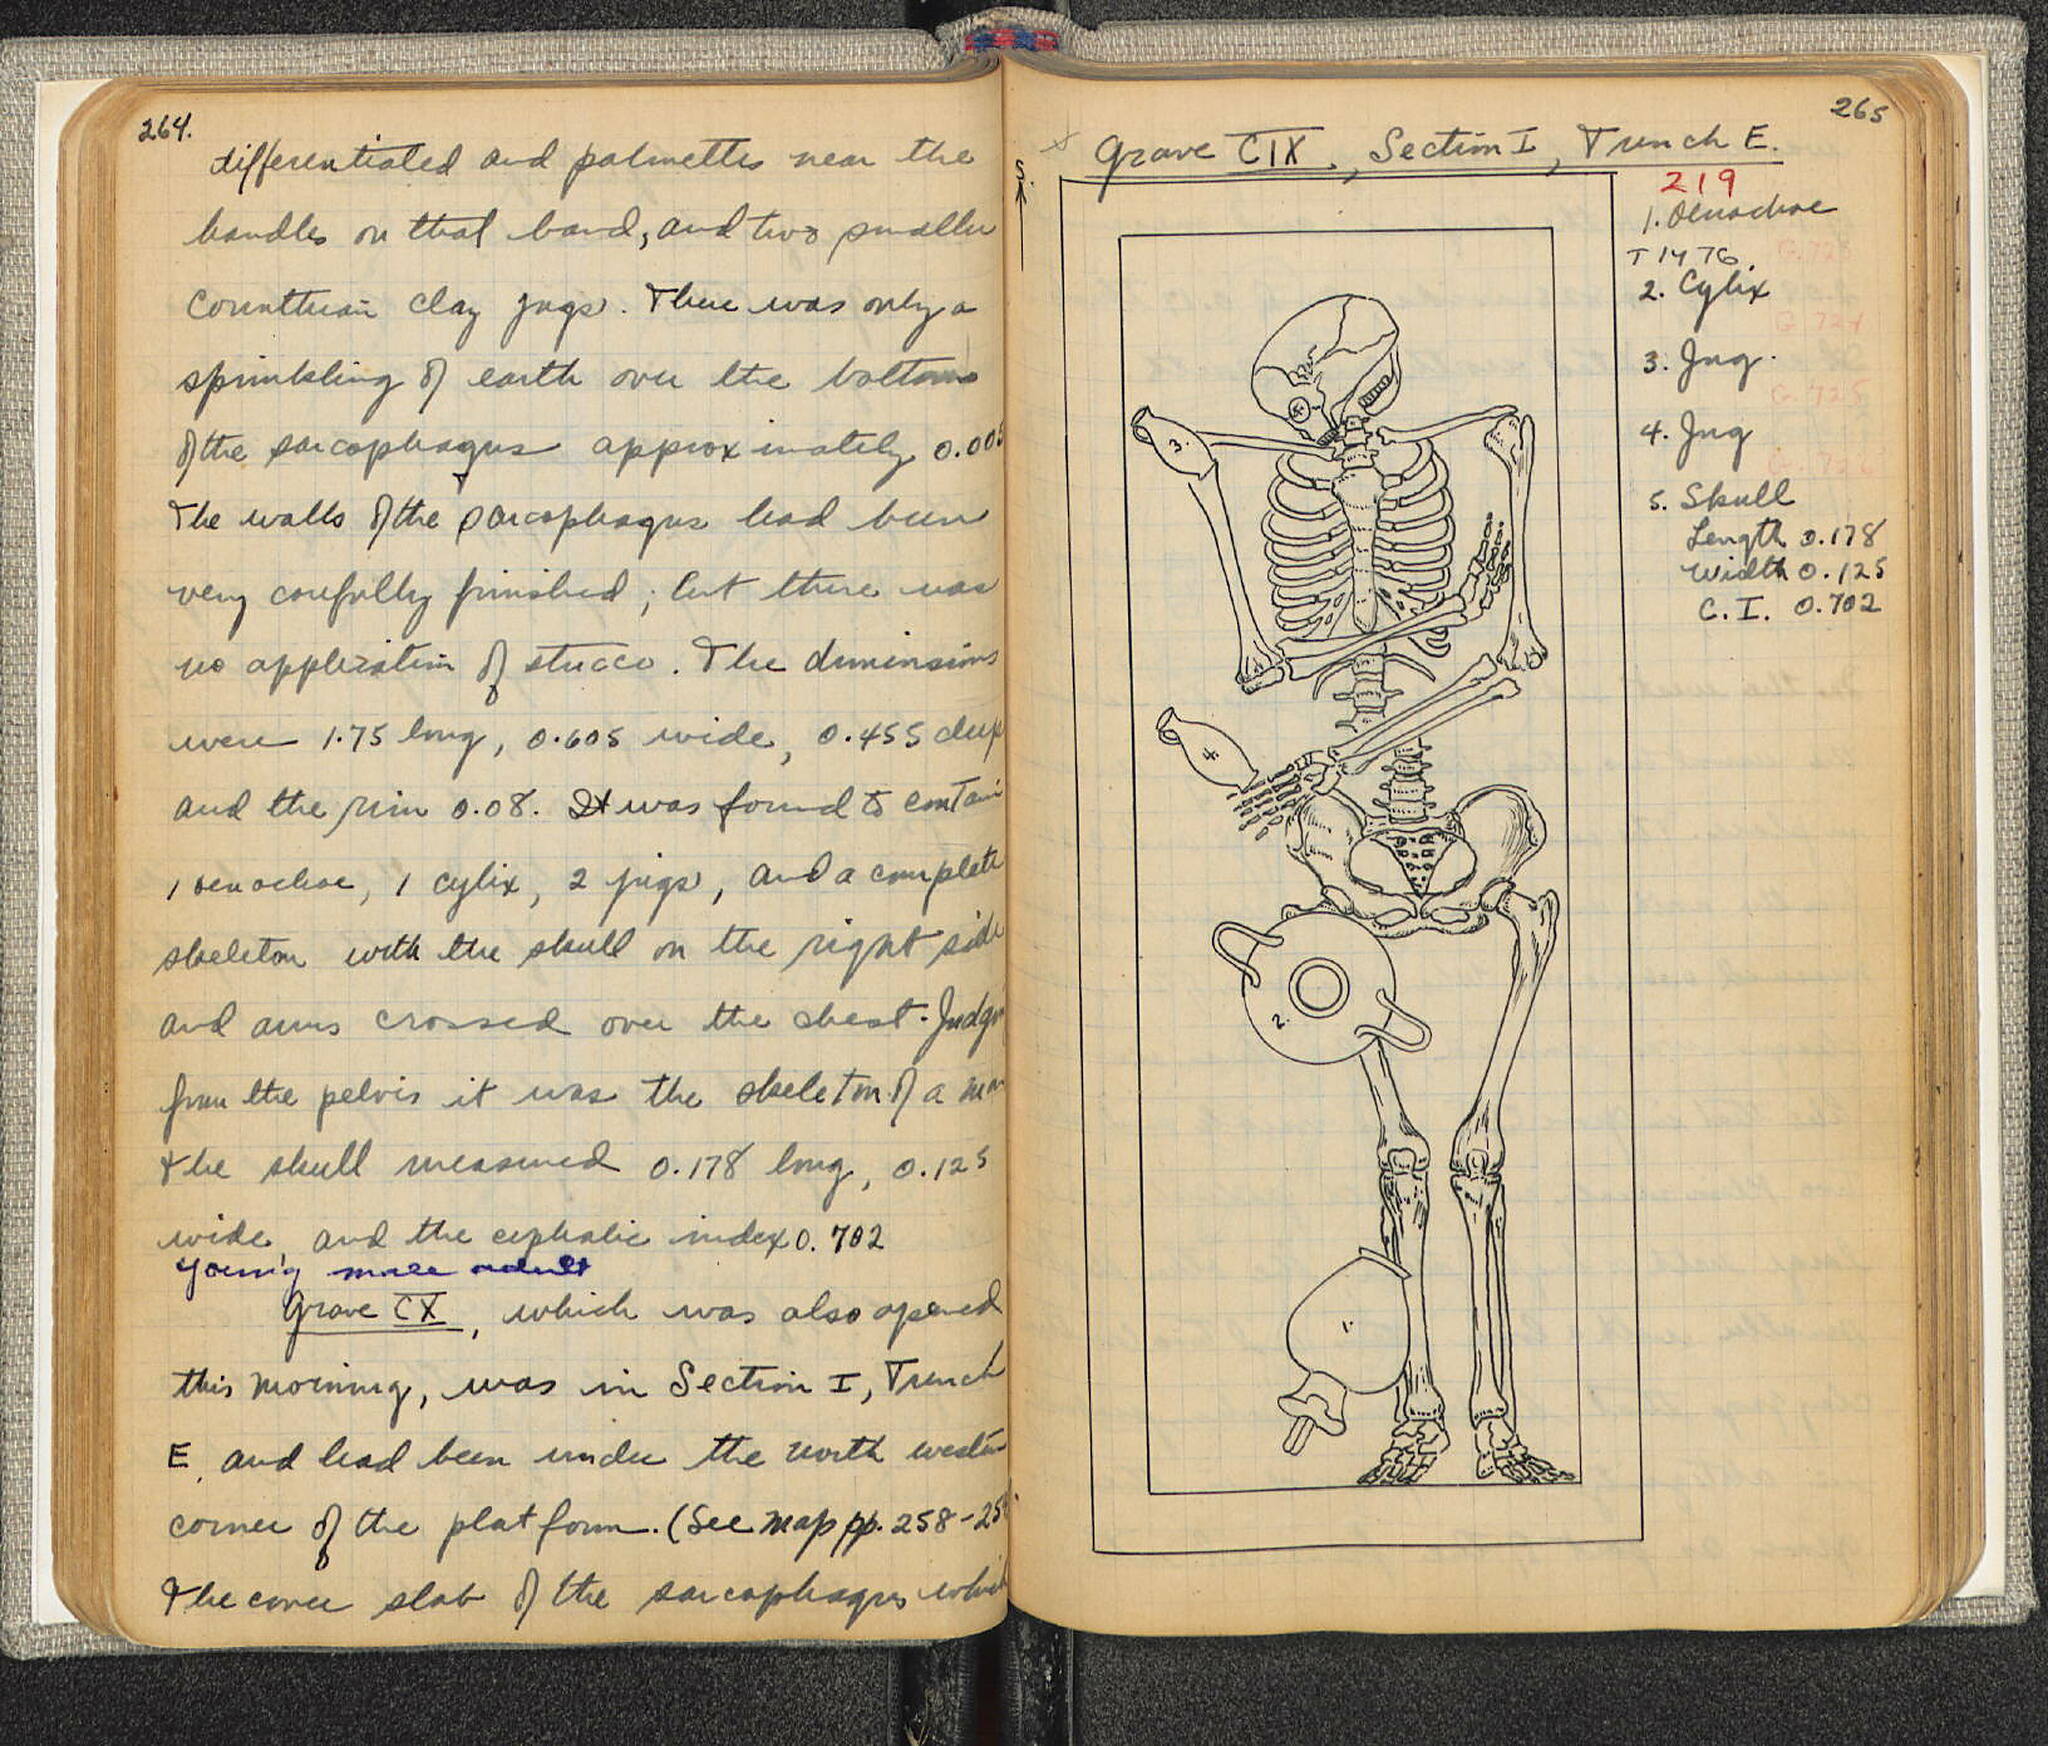 264.
differentiated and palmettes near the
handles on that band, and two smaller
Corinthian clay jugs. There was only a
sprinkling of earth over the bottom
of the sarcophagus approximately 0.005
The walls of the sarcophagus had been
very carefully finished; but there was
no application of stucco. The dimensions
were 1.75 long, 0.605 wide, 0.455 deep
and the rim 0.08. It was found to contain
1 oenochoe, 1 cylix, 2 jugs, and a complete
skeleton with the skull on the right side
and arms crossed over the chest. Judgi
from the pelvis it was the skeleton of a man
The skull measured 0.178 long, 0.125
wide, and the cephalic index 0.702
Young male adult
Grave CX, which was also opened
this morning, was in Section I, Trench
E, and had been under the north western
corner of the platform. (See map pp. 258-259.
The cover slab of the sarcophagus which
265
x Grave CIX, Section I, Trench E.
S.
219
1. Oenochoe
T 1476. G. 723
2. Cylix
G. 724
3. Jug.
G. 725
4. Jug
G. 726
5. Skull
Length 0.178
Width 0.125
C. I. 0.702
3.
4.
2.
1.